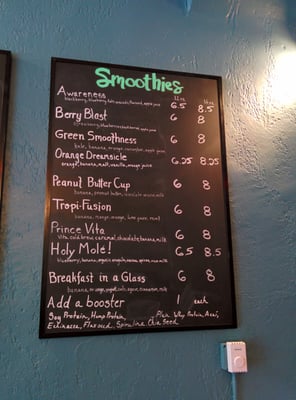 Smoothies
12 oz 16 oz
Awareness 6.5 8.5
blackberry, blueberry, kale, avocado, flaxseed, apple juice
Berry Blast 6 8
strawberry, blueberry, blackberry, banana, apple juice
Green Smoothness 6 8
kale, banana, orange, cucumber, apple juice
Orange Dreamsicle 6.25 8.25
orange, banana, malt, vanilla, orange juice
Peanut Butter Cup 6 8
banana, peanut butter, chocolate sauce, milk
Tropi-Fusion 6 8
banana, mango, orange, lime juice
Prince Vita 6 8
Vita cold brew, caramel, chocolate, banana, milk
Holy Mole! 6.5 8.5
blueberry, banana, organic cayenne, cocoa, spirulina, milk
Breakfast in a Glass 6 8
banana, orange, yogurt, oats, agave, cinnamon, milk
Add a booster 1 each
Soy Protein, Hemp Protein, Whey Protein, Acai,
Echinacea, Flax seed, Spirulina, Chia Seed